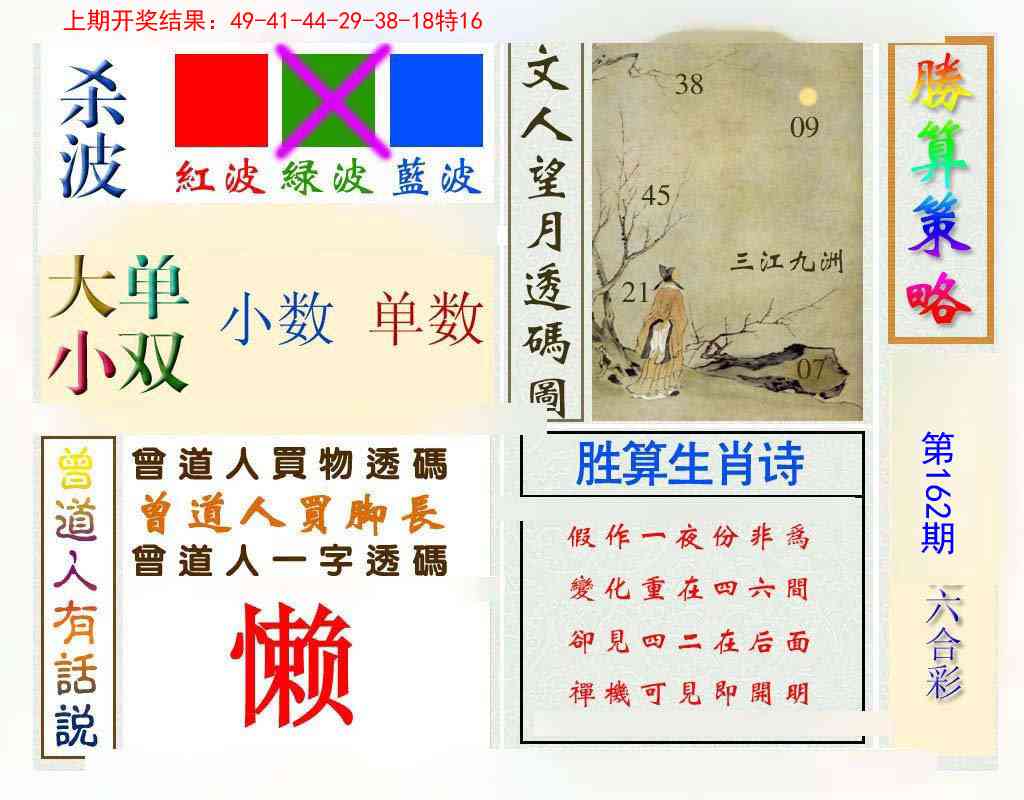 上期开奖结果：49-41-44-29-38-18特16
杀波
紅波 緑波 藍波
大单
小双
小数 单数
文人望月透碼圖
38
09
45
三江九洲
21
07
勝算策略
曾道人有話説
曾道人買物透碼
曾道人買脚長
曾道人一字透碼
懒
胜算生肖诗
假作一夜份非爲
變化重在四六間
卻見四二在后面
禪機可見即開明
第162期
六合彩